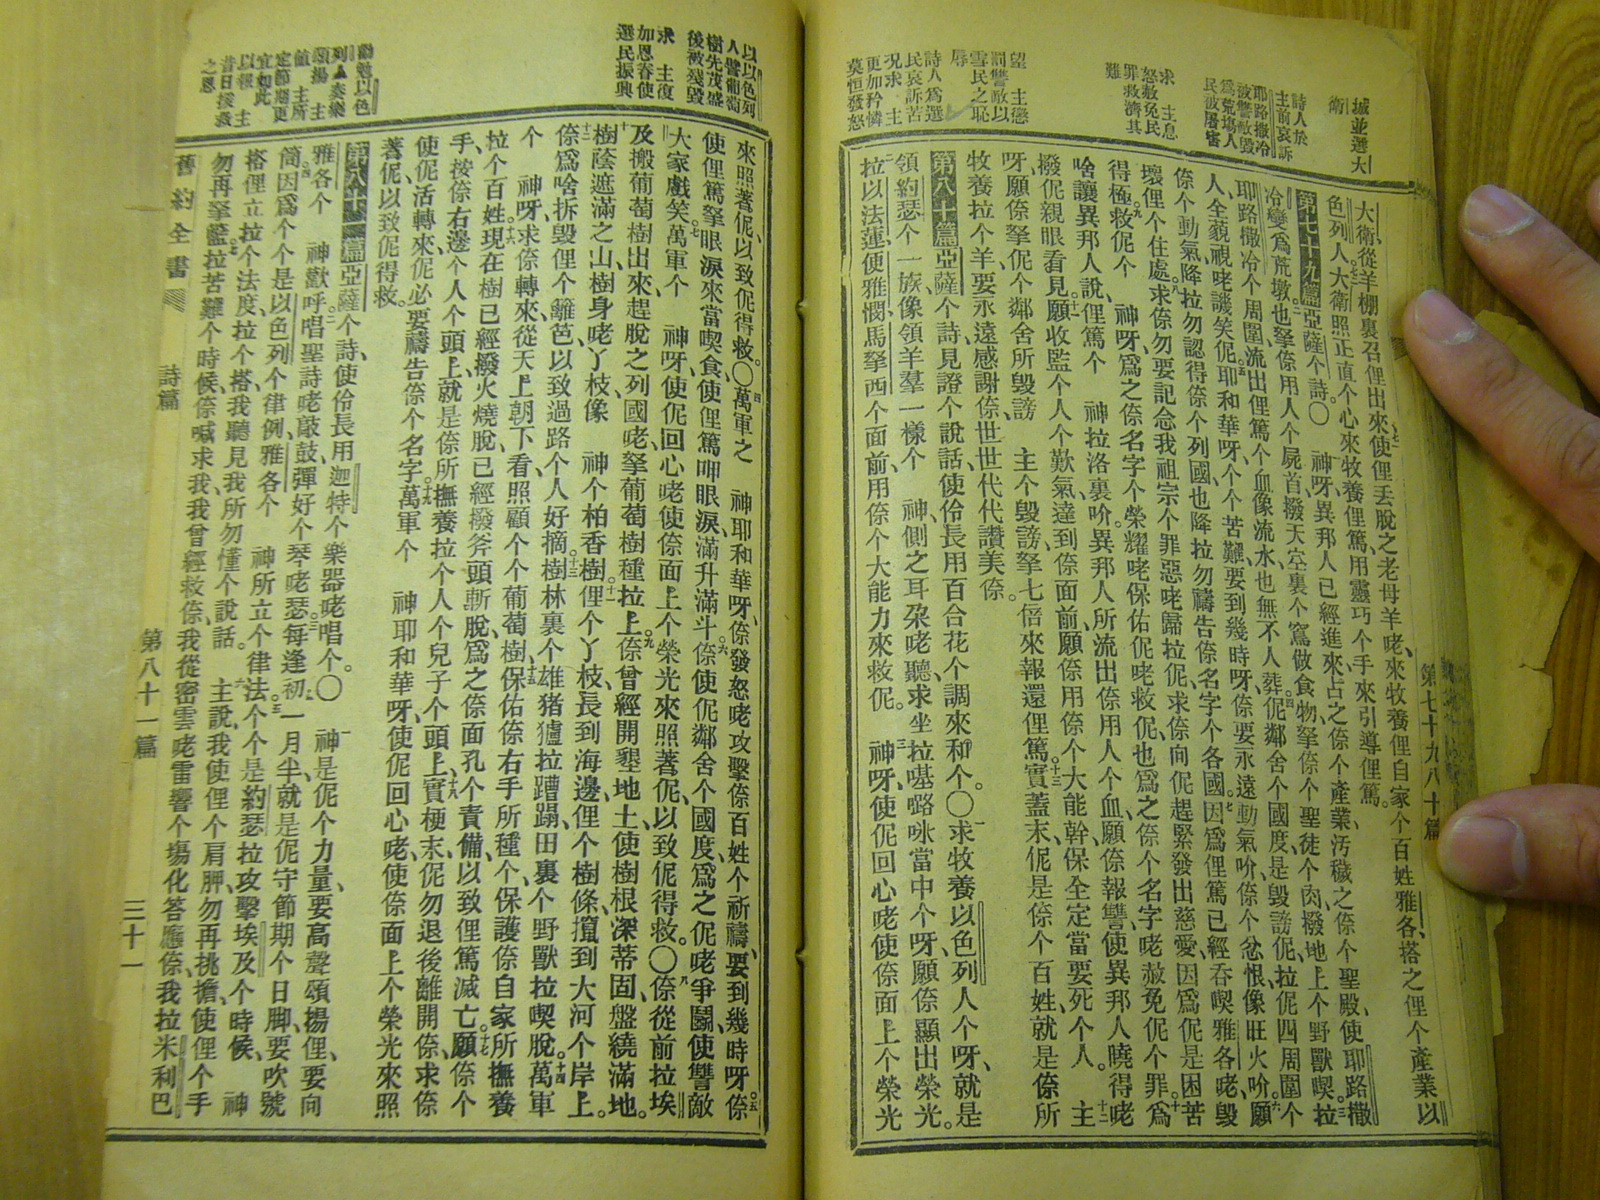 城並選大
衛
詩人於
主前哀訴
耶路撒冷
被讐敵毀
爲荒場人
民被屠害
求　主息
怒赦免民
罪救濟其
難
望　主懲
罰讐敵以
雪民之恥
辱
詩人爲選
民哀訴苦
况求　主
更加矜憐
莫恒發怒
第七十九八十篇
大衛從羊棚裏召俚出來使俚丟脫之老母羊咾來牧養俚自家个百姓雅各搭之俚个產業以
色列人大衛照正直个心來牧養俚篤用靈巧个手來引導俚篤
第七十九篇亞薩个詩〇　神呀異邦人已經進來占之倷个產業汚穢之倷个聖殿使耶路撒
冷變爲荒墩也拏倷用人个屍首撥天空裏个窵做食物拏倷个聖徒个肉撥地上个野獸喫拉
耶路撒冷个周圍流出俚篤个血像流水也無不人葬伲鄰舍个國度是毀謗伲拉伲四周圍个
人全藐視咾譏笑伲耶和華呀个个苦難要到幾時呀倷要永遠動氣吤倷个忿恨像旺火吤願
倷个動氣降拉勿認得倷个列國也降拉勿禱告倷名字个各國因爲俚篤已經吞喫雅各咾毀
壞俚个住處求倷勿要記念我祖宗个罪惡咾歸拉伲求倷向伲趕緊發出慈愛因爲伲是困苦
得極救伲个　神呀爲之倷名字个榮耀咾保佑伲咾救伲也爲之倷个名字咾赦免伲个罪爲
啥讓異邦人說俚篤个　神拉洛裏吤異邦人所流出倷用人个血願倷報讐使異邦人曉得咾
撥伲親眼看見願收監个人个歎氣達到倷面前願倷用倷个大能幹保全定當要死个人　主
呀願倷拏伲个鄰舍所毀謗　主个毀謗拏七倍來報還俚篤實蓋末伲是倷个百姓就是倷所
牧養拉个羊要永遠感謝倷世世代代讚美倷
第八十篇亞薩个詩見證个說話使伶長用百合花个調來和个〇求牧養以色列人个呀就是
領約瑟个一族像領羊羣一樣个　神側之耳朶咾聽求坐拉𠼻𡀔咏當中个呀願倷顯出榮光
拉以法蓮便雅憫馬拏西个面前用倷个大能力來救伲　神呀使伲回心咾使倷面上个榮光
以以色列
人譬葡萄
樹先茂盛
後被殘毀
求　主復
加恩眷使
選民振興
勸勉以色
列人奏樂
頌揚　主
値　主所
定節期更
宜如此
以報　主
昔日援救
之恩
來照著伲以致伲得救〇萬軍之　神耶和華呀倷發怒咾攻擊倷百姓个祈禱要到幾時呀倷
使俚篤拏眼淚來當喫食使俚篤呷眼淚滿升滿斗倷使伲鄰舍个國度爲之伲咾爭鬭使讐敵
大家戲笑萬軍个　神呀使伲回心咾使倷面上个榮光來照著伲以致伲得救〇倷從前拉埃
及搬葡萄樹出來趕脫之列國咾拏葡萄樹種拉上倷曾經開墾地土使樹根深蒂固盤繞滿地
樹蔭遮滿之山樹身咾丫枝像　神个柏香樹俚个丫枝長到海邊俚个樹條擅到大河个岸上
倷爲啥拆毀俚个籬笆以致過路个人好摘樹林裏个雄猪獹拉蹧蹋田裏个野獸拉喫脫萬軍
个　神呀求倷轉來從天上朝下看照顧个个葡萄樹保佑倷右手所種个保護倷自家所撫養
拉个百姓現在樹已經撥火燒脫已經撥斧頭斬脫爲之倷面孔个責備以致俚篤滅亡願倷个
手按倷右邊个人个頭上就是倷所撫養拉个人个兒子个頭上實梗末伲勿退後離開倷求倷
使伲活轉來伲必要禱告倷个名字萬軍个　神耶和華呀使伲回心咾使倷面上个榮光來照
著伲以致伲得救
第八十一篇亞薩个詩使伶長用迦特个樂器咾唱个〇　神是伲个力量要高聲頌揚俚要向
雅各个　神歡呼唱聖詩咾敲鼓彈好个琴咾瑟每逢初一月半就是伲守節期个日脚要吹號
筒因爲个个是以色列个律例雅各个　神所立个律法个个是約瑟拉攻擊埃及个時候　神
搭俚立拉个法度拉个搭我聽見我所勿懂个說話　主說我使俚个肩胛勿再挑擔使俚个手
勿再拏籃拉苦難个時候倷喊求我我曾經救倷我從密雲咾雷響个塲化答應倷我拉米利巴
舊約全書　詩篇　第八十一篇　三十一